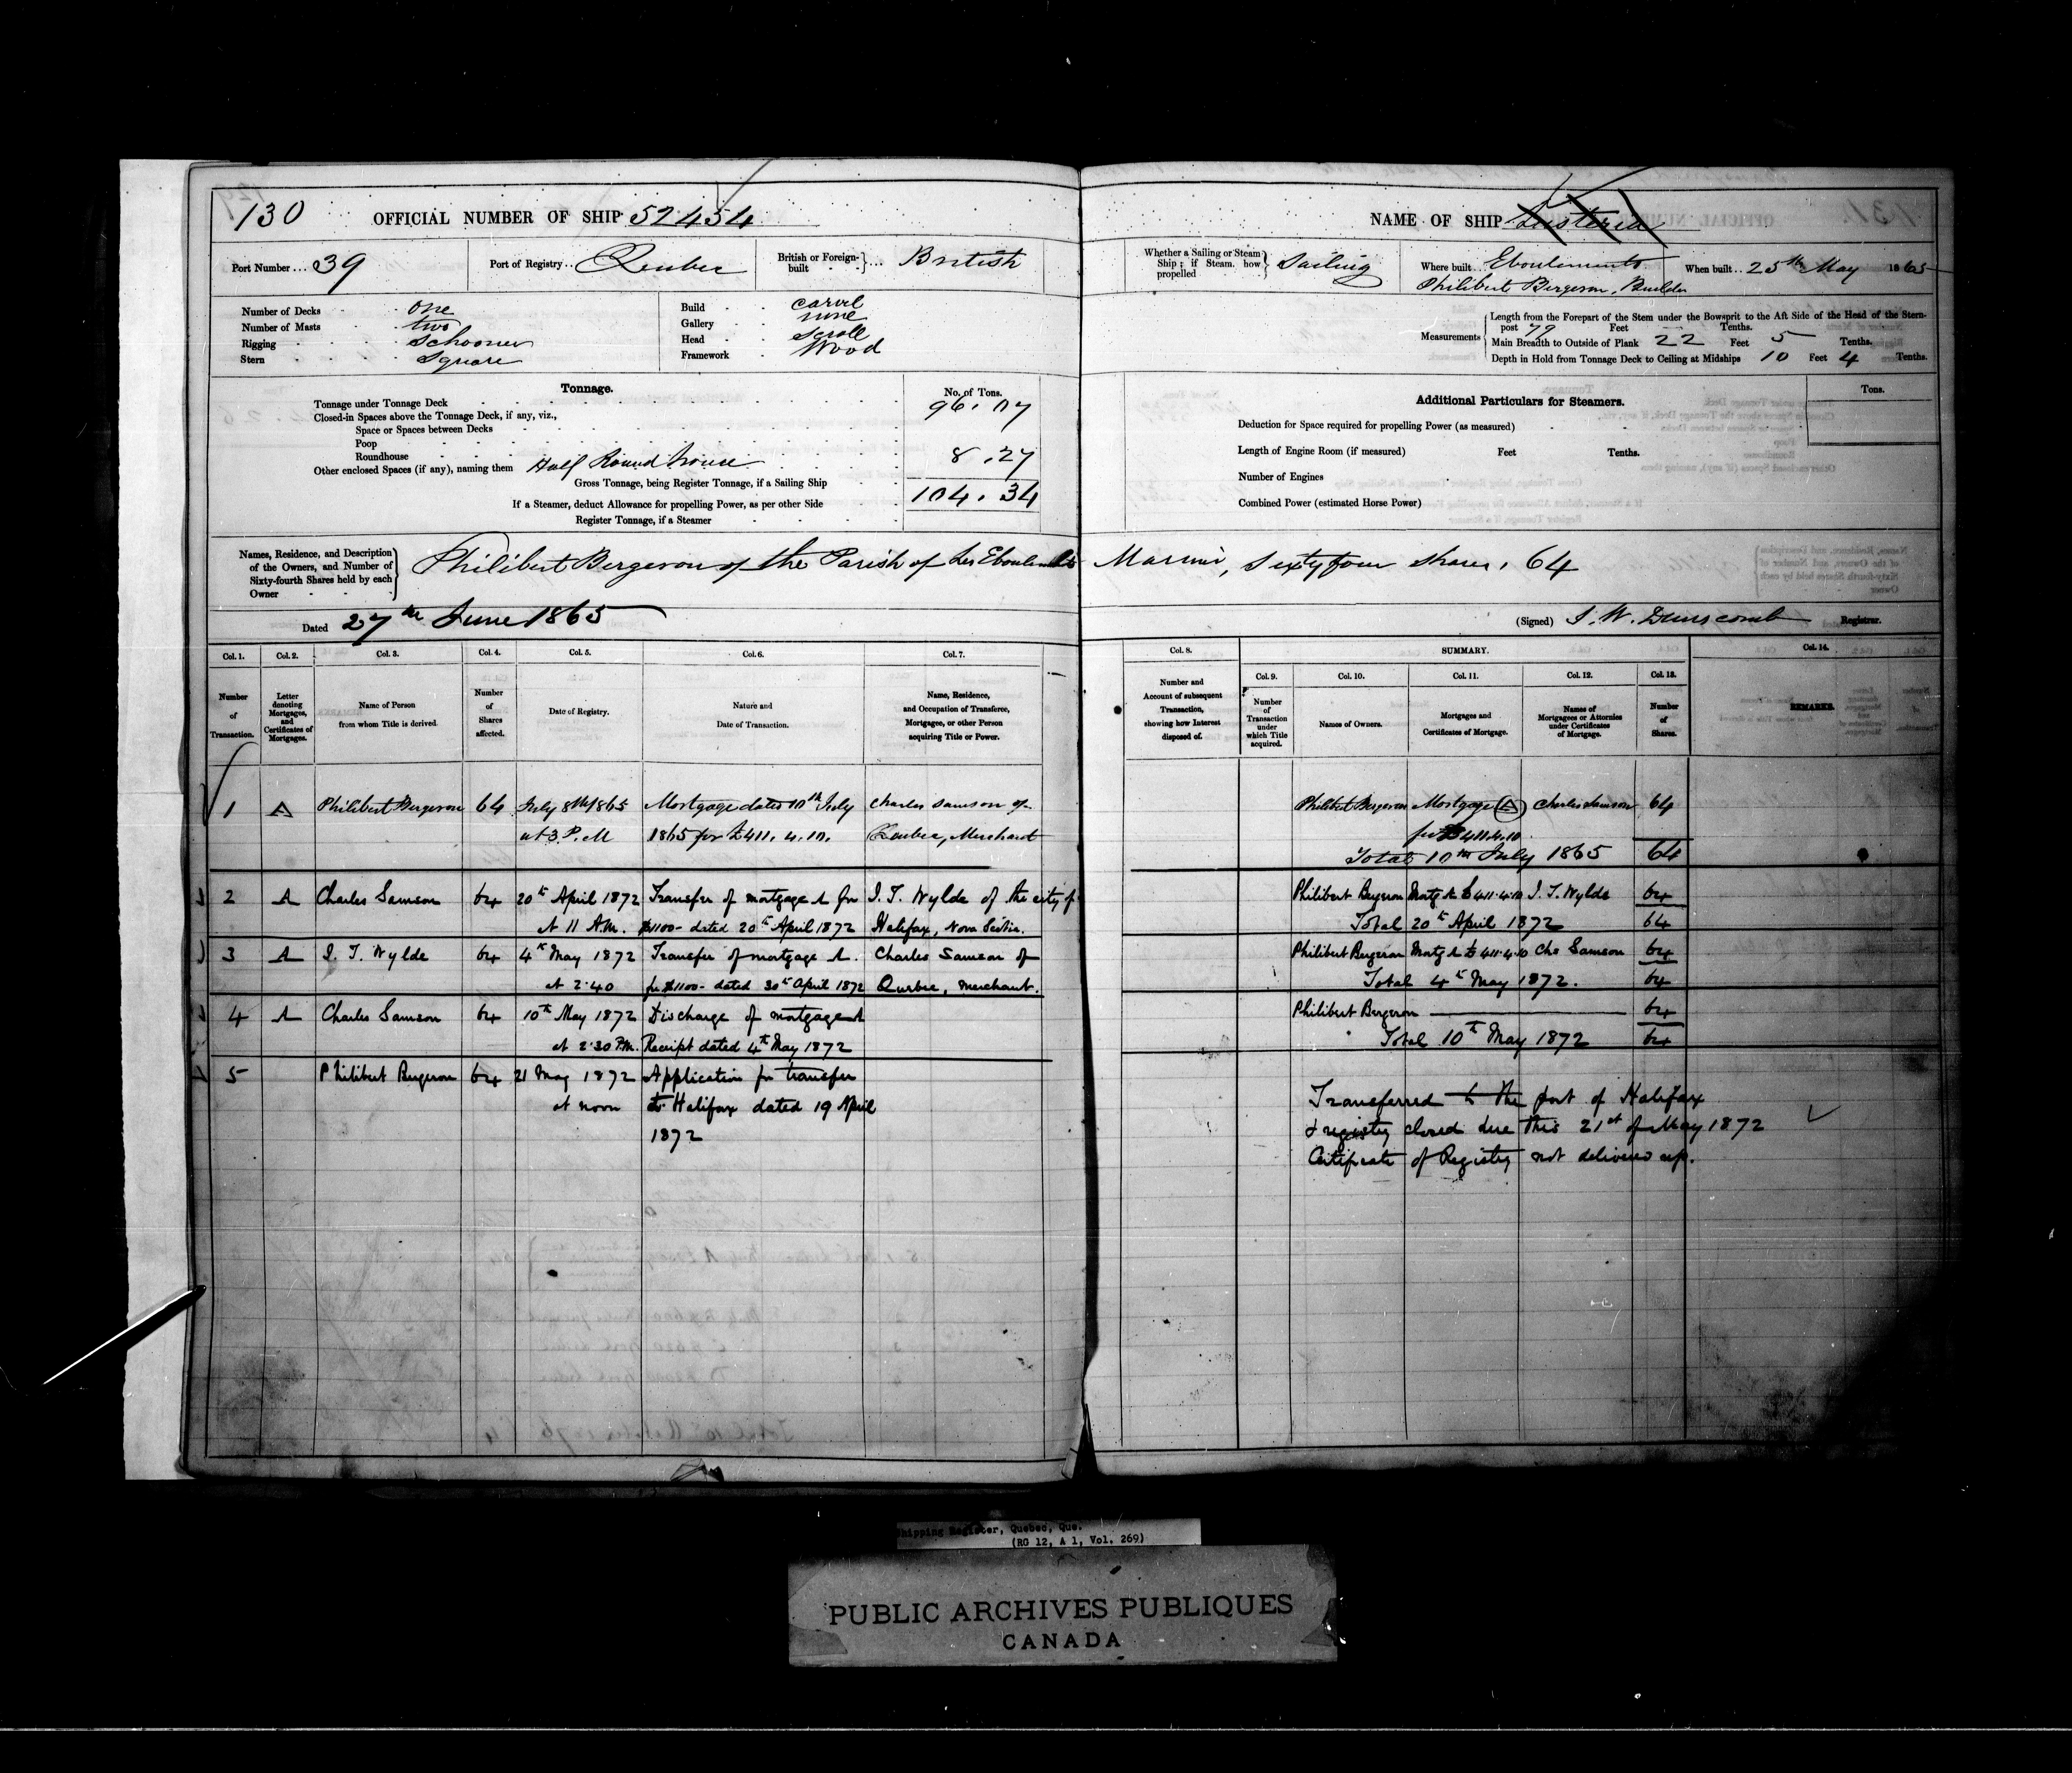 130 OFFICIAL NUMBER OF SHIP 52454
Port Number... 39 Port of Registry.. Quebec British or Foreign-built } ... British
Number of Decks one
Number of Masts two
Rigging Schooner
Stern Square
Build carvel
Gallery none
Head Scroll
Framework Wood
Tonnage. No. of Tons.
Tonnage under Tonnage Deck 96.07
Closed-in Spaces above the Tonnage Deck, if any, viz.,
Space or Spaces between Decks
Poop
Roundhouse
Other enclosed Spaces (if any), naming them Half Round house 8.27
Gross Tonnage, being Register Tonnage, if a Sailing Ship 104.34
If a Steamer, deduct Allowance for propelling Power, as per other Side
Register Tonnage, if a Steamer
NAME OF SHIP
Whether a Sailing or Steam Ship; if Steam, how propelled } Sailing Where built.. Eboulements When built.. 25th May 1865
Philibert Bergeron, Builder
Measurements
Length from the Forepart of the Stem under the Bowsprit to the Aft Side of the Head of the Stern-
post 79 Feet Tenths.
Main Breadth to Outside of Plank 22 Feet 5 Tenths.
Depth in Hold from Tonnage Deck to Ceiling at Midships 10 Feet 4 Tenths.
Additional Particulars for Steamers. Tons.
Deduction for Space required for propelling Power (as measured)
Length of Engine Room (if measured) Feet Tenths.
Number of Engines
Combined Power (estimated Horse Power)
Names, Residence, and Description of the Owners, and Number of Sixty-fourth Shares held by each Owner } Philibert Bergeron of the Parish of Les Eboulements Mariner, Sixty four shares, 64
Dated 27th June 1865 (Signed) J. W. Dunscomb Registrar.
Col. 1. Col. 2. Col. 3. Col. 4. Col. 5. Col. 6. Col. 7.
Number of Transaction.
Letter denoting Mortgages, and Certificates of Mortgages.
Name of Person from whom Title is derived.
Number of Shares affected.
Date of Registry.
Nature and Date of Transaction.
Name, Residence, and Occupation of Transferee, Mortgagee, or other Person acquiring Title or Power.
1 A Philibert Bergeron 64 July 8th 1865 Mortgage dated 10th July Charles Samson of
at 3 P.M 1865 for £411.4.10. Quebec, Merchant
2 A Charles Samson 64 20th April 1872 Transfer of mortgage A for I. T. Wylde of the city of
At 11 A.M. $1100- dated 20th April 1872 Halifax, Nova Scotia.
3 A I. T. Wylde 64 4th May 1872 Transfer of mortgage A. Charles Samson of
at 2.40 for $1100- dated 30th April 1872 Quebec, Merchant.
4 A Charles Samson 64 10th May 1872 Discharge of mortgage A
at 2.30 P.M. Receipt dated 4th May 1872
5 Philibert Bergeron 64 21 May 1872 Application for transfer
at noon to Halifax dated 19 April
1872
Col. 8. SUMMARY. Col. 14.
Col. 9. Col. 10. Col. 11. Col. 12. Col. 13.
Number and Account of subsequent Transaction, showing how Interest disposed of.
Number of Transaction under which Title acquired.
Names of Owners.
Mortgages and Certificates of Mortgage.
Names of Mortgagees or Attornies under Certificates of Mortgage.
Number of Shares.
REMARKS.
Philibert Bergeron Mortgage (A) Charles Samson 64
for £411.4.10
Total 10th July 1865 64
Philibert Bergeron Mortg A £411.4.10 I. T. Wylde 64
Total 20th April 1872 64
Philibert Bergeron Mortg A £411.4.10 Chs Samson 64
Total 4th May 1872. 64
Philibert Bergeron 64
Total 10th May 1872 64
Transferred to the port of Halifax
& registry closed due this 21st of May 1872
Certificate of Registry not delivered up.
Shipping Register, Quebec, Que.
(RG 12, A 1, Vol. 269)
PUBLIC ARCHIVES PUBLIQUES
CANADA